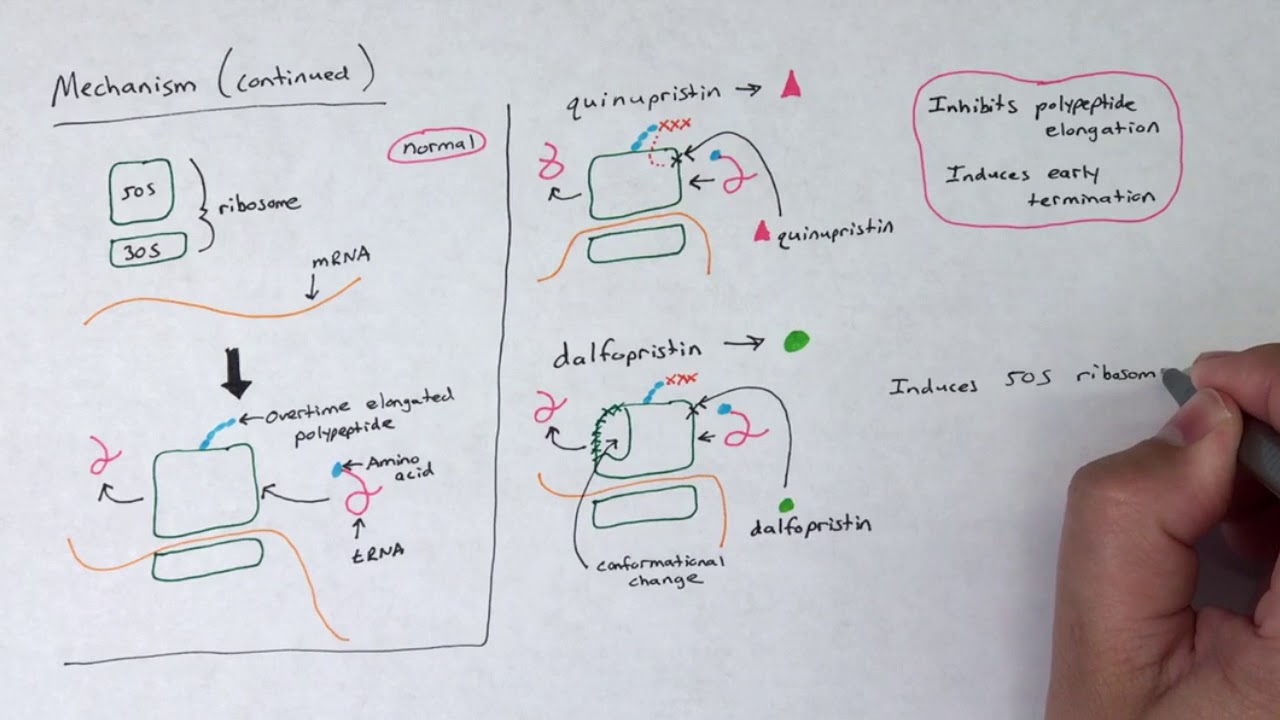 Mechanism (continued)
normal
50S
30S
ribosome
mRNA
overtime elongated
polypeptide
Amino
acid
tRNA
quinupristin →
xxx
quinupristin
dalfopristin →
xxx
dalfopristin
conformational
change
Inhibits polypeptide
elongation
Induces early
termination
Induces 50S ribosom